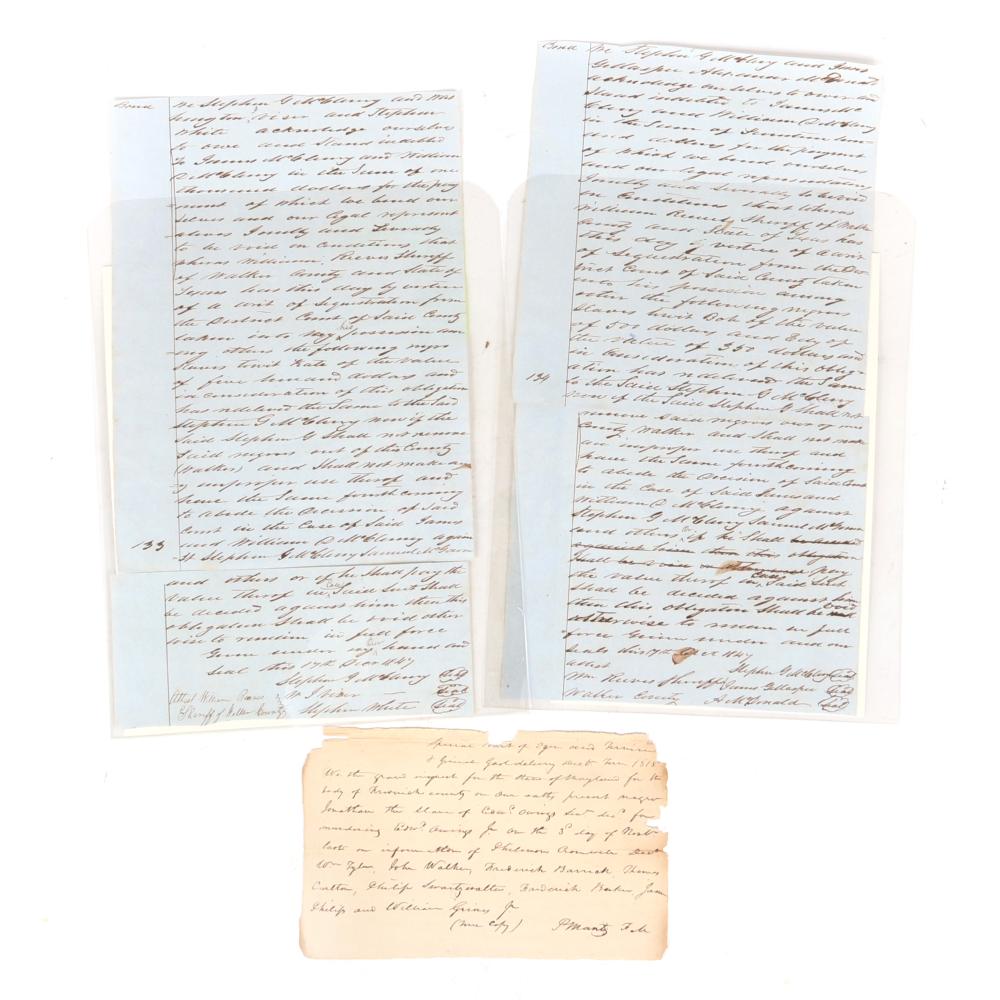 Bond We Stephen G McClenny and Was
hington Viser and Stephen
White acknowledge ourselves
to owe and Stand indebted
To James McClenny and William
P McClenny in the Sum of one
thousand dollars for the pay
ment of which we bend our
selves and our legal represent
atives Jointly and Severally
to be void on Conditions that
wheras William Reeves Sheriff
of Walker County and State of
Texas has this day by vertue
of a writ of Sequestration from
the District Court of Said County
taken into my his possession am
ong others the following negro
Slaves towit Kate of the value
of five hundred dollars and
in consideration of this obligation
has redelivered the Same to the Said
Stephen G McClenny Now if the
Said Stephen G Shall not remove
Said negroes out of this County
(Walker) and Shall not make an
y improper use therof and
have the Same fourthcoming
to abide the decision of Said
Court in the Case of Said James
133 and William P McClenny again
St Stephen G McClenny Samuel
and others or if he Shall pay the
value therof in Case Said Suit Shall
be decided against him then this
obligation Shall be void other
wise to remain in full force
Given under my hand and
Seal this 17th 1847
Stephen G McClenny Seal
W J Viser Seal
Stephen White Seal
Attest William Reeves
Sheriff of Walker County
Bond We Stephen G McClenny and James
Gillaspie Alexander McDonald
acknowledge ourselves to owe and
Stand indebted to James Mc
Clenny and William P McClenny
in the Sum of Seventeen hun
dred dollars for the payment
of which we bend ourselves
and our legal representatives
Jointly and Severally to be void
on Conditions that wheras
William Reeves Sheriff of Walker
County and State of Texas has
this day by vertue of a writ
of Sequestration from the Dis
trict Court of Said County taken
into his possession among
other the following negroes
Slaves towit Bob of the value
of 500 dollars and
the value of 350 dollars and
in consideration of this oblig
134 ation has redelivered the Same
to the Said Stephen G McClenny
Now if the Said Stephen G Shall not
remove said negroes out of
County Walker and Shall not make
an improper use therof and
have the Same fourthcoming
to abide the decision of Said Court
in the Case of Said James and
William P McClenny against
Stephen G McClenny Samuel
and others or if he Shall
pay
the value therof in Case Said Suit
Shall be decided against him
then this obligation Shall be void
otherwise to remain in full
force Given under our
Seals this 17th 1847
Stephen G McClenny Seal
attest
Wm Reeves Sheriff James Gillaspie Seal
Walker County A McDonald Seal
Special Court of Oyer and Terminer
& General Gaol delivery Term 1818
We the grand inquest for the State of Maryland for the
body of Frederick county on our oaths present negro
Jonathan the Slave of Edwd Owings for
murdering Edwd Owings Jr on the 3d day of Novr
last on information of Philemon Cromwell
Wm Tyler, John Walker, Frederick Barrick, Thomas
Philip Swartzwalter, Frederick Becker, James
Philips and William Grimes Jr
(true Copy) P Mantz F M